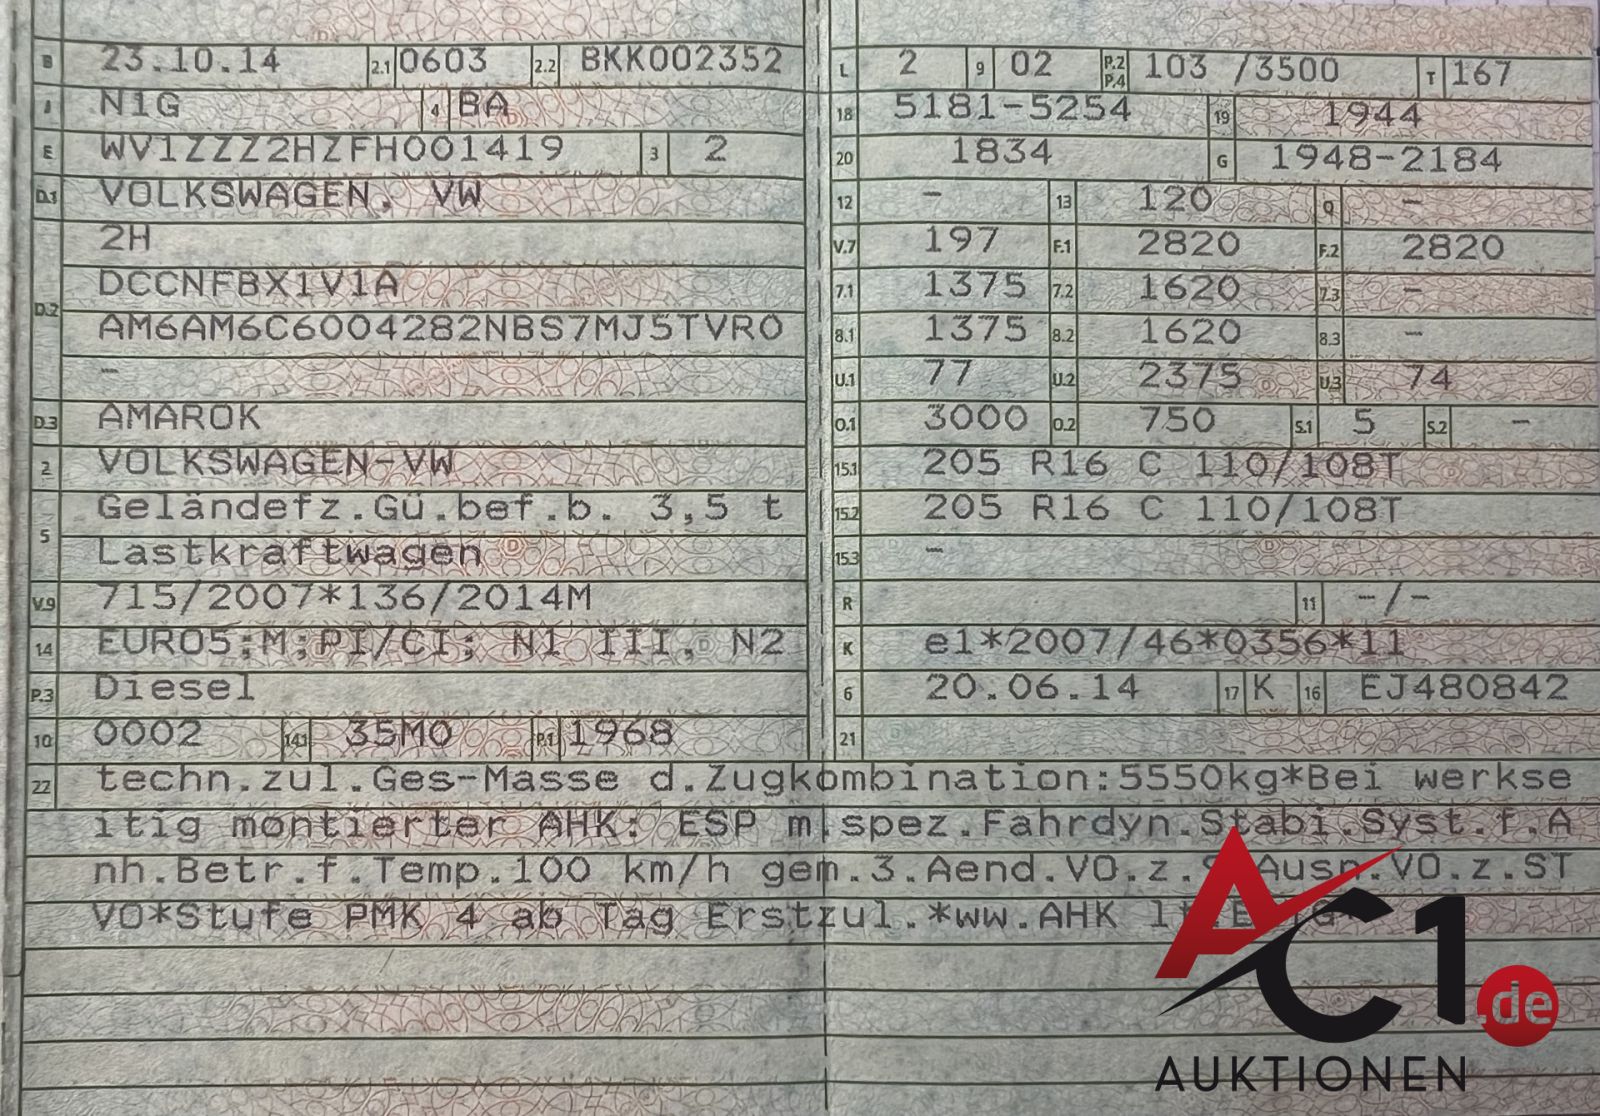 B 23.10.14 2.1 0603 2.2 BKK002352
J N1G 4 BA
E WV1ZZZ2HZFH001419 3 2
D.1 VOLKSWAGEN, VW
2H
D.2 DCCNFBX1V1A
AM6AM6C6004282NBS7MJ5TVR0
–
D.3 AMAROK
2 VOLKSWAGEN-VW
5 Geländefz.Gü.bef.b. 3,5 t
Lastkraftwagen
V.9 715/2007*136/2014M
14 EURO5;M;PI/CI; N1 III, N2
P.3 Diesel
10 0002 14.1 35M0 P.1 1968
L 2 9 02 P.2 P.4 103 /3500 T 167
18 5181-5254 19 1944
20 1834 G 1948-2184
12 – 13 120 Q –
V.7 197 F.1 2820 F.2 2820
7.1 1375 7.2 1620 7.3 –
8.1 1375 8.2 1620 8.3 –
U.1 77 U.2 2375 U.3 74
O.1 3000 O.2 750 S.1 5 S.2 –
15.1 205 R16 C 110/108T
15.2 205 R16 C 110/108T
15.3 –
R 11 –/–
K e1*2007/46*0356*11
6 20.06.14 17 K 16 EJ480842
21
22 techn.zul.Ges-Masse d.Zugkombination:5550kg*Bei werkse
itig montierter AHK: ESP m.spez.Fahrdyn.Stabi.Syst.f.A
nh.Betr.f.Temp.100 km/h gem.3.Aend.VO.z. Ausn.VO.z.ST
VO*Stufe PMK 4 ab Tag Erstzul.*ww.AHK
AC1.de
AUKTIONEN